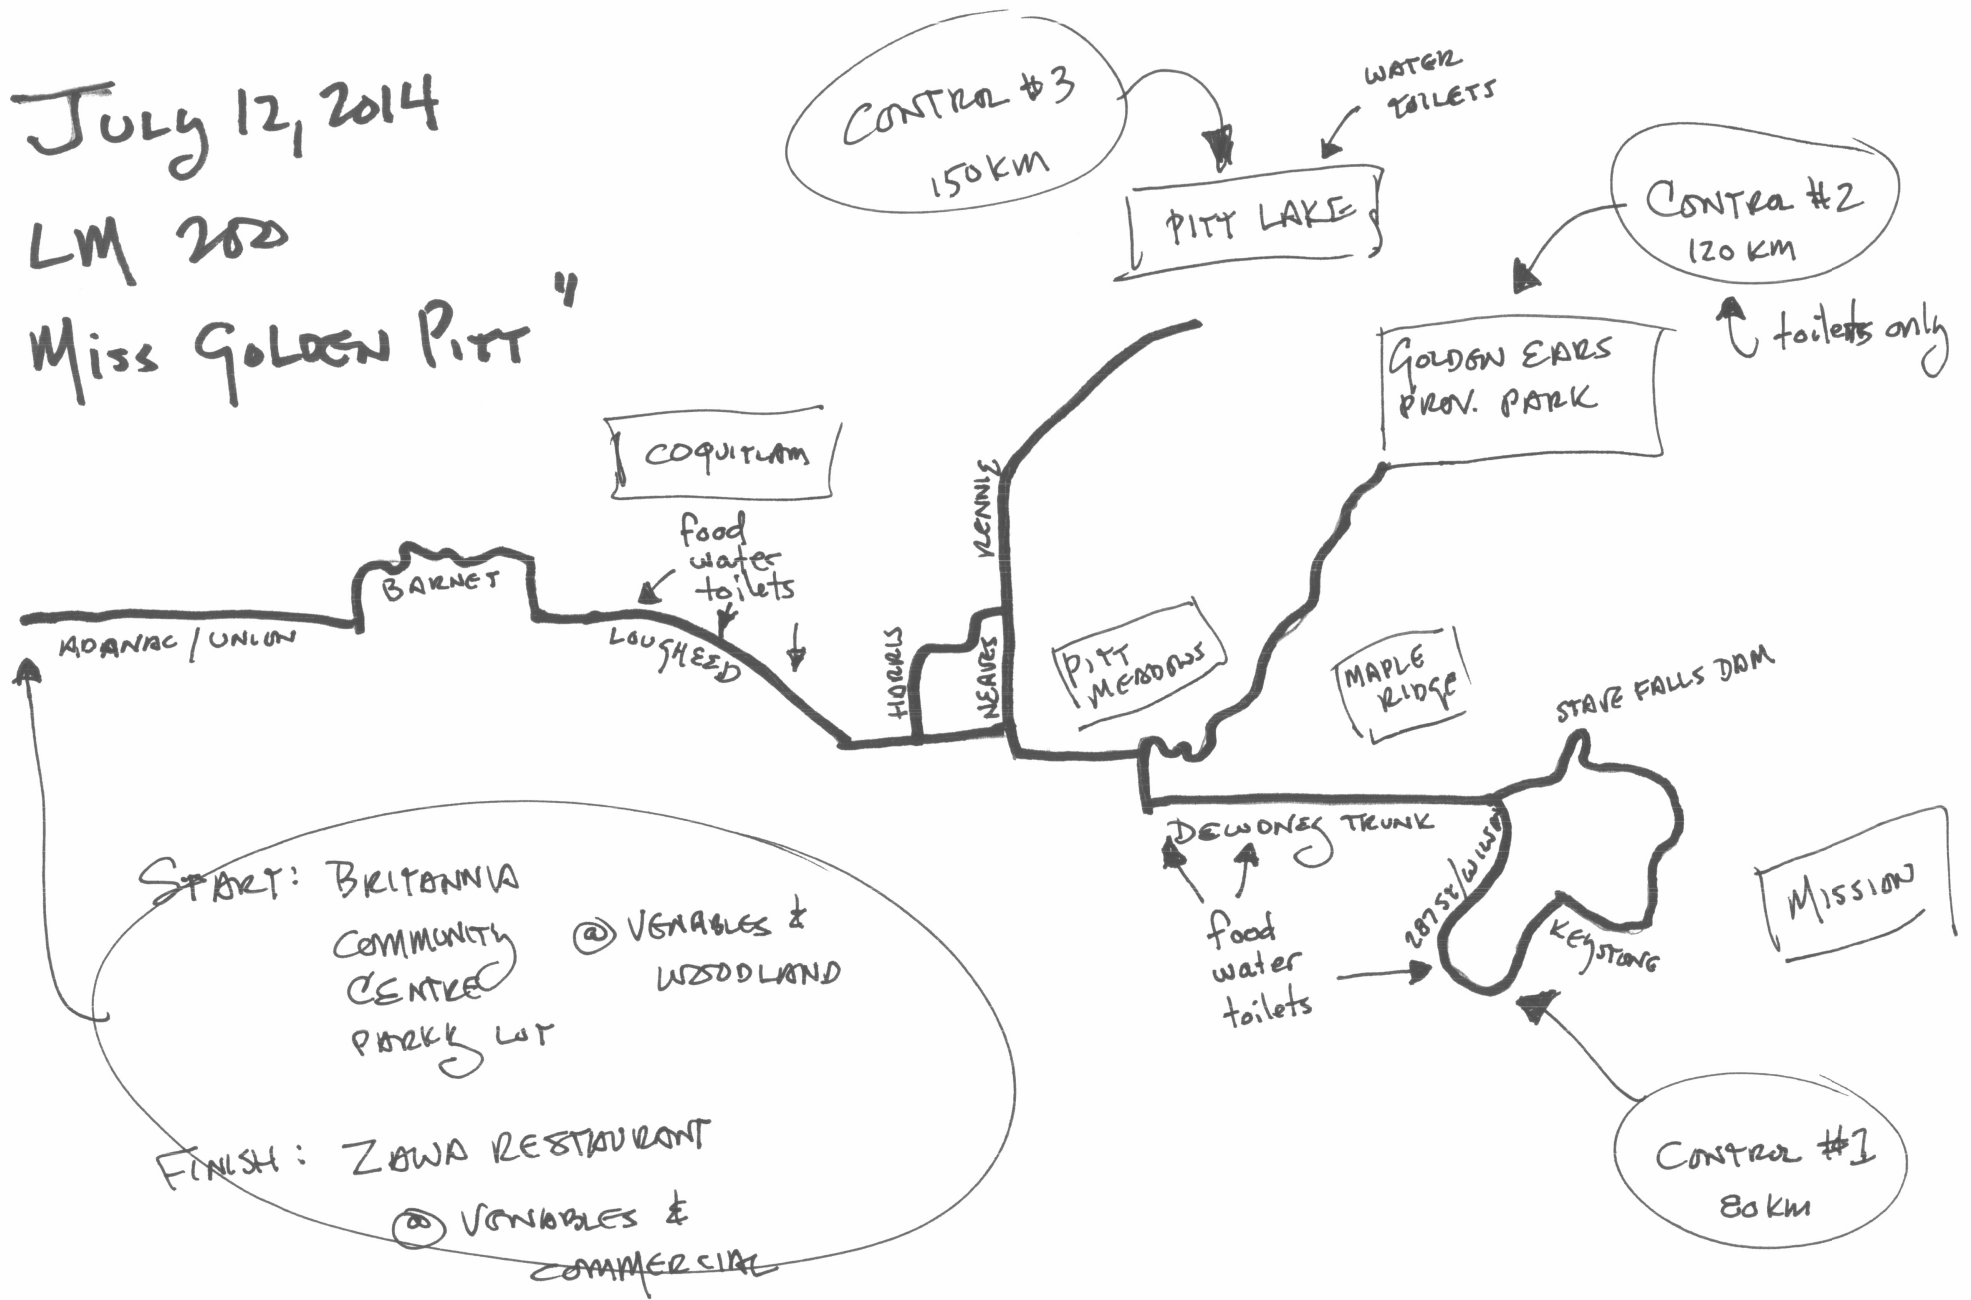 July 12, 2014
LM 200
Miss Golden Pitt"
CONTROL #3
150 KM
WATER
TOILETS
PITT LAKE
CONTROL #2
120 KM
toilets only
GOLDEN EARS
PROV. PARK
COQUITLAM
food
water
toilets
RENNIE
BARNET
ADANAC / UNION
LOUGHEED
HARRIS
NEAVES
PITT
MEADOWS
MAPLE
RIDGE
STAVE FALLS DAM
DEWDNEY TRUNK
287 St/
KEYSTONE
MISSION
food
water
toilets
START: BRITANNIA
COMMUNITY
CENTRE
PARKG LOT
@ VENABLES &
WOODLAND
FINISH: ZAWA RESTAURANT
@ VENABLES &
COMMERCIAL
CONTROL #1
80 KM